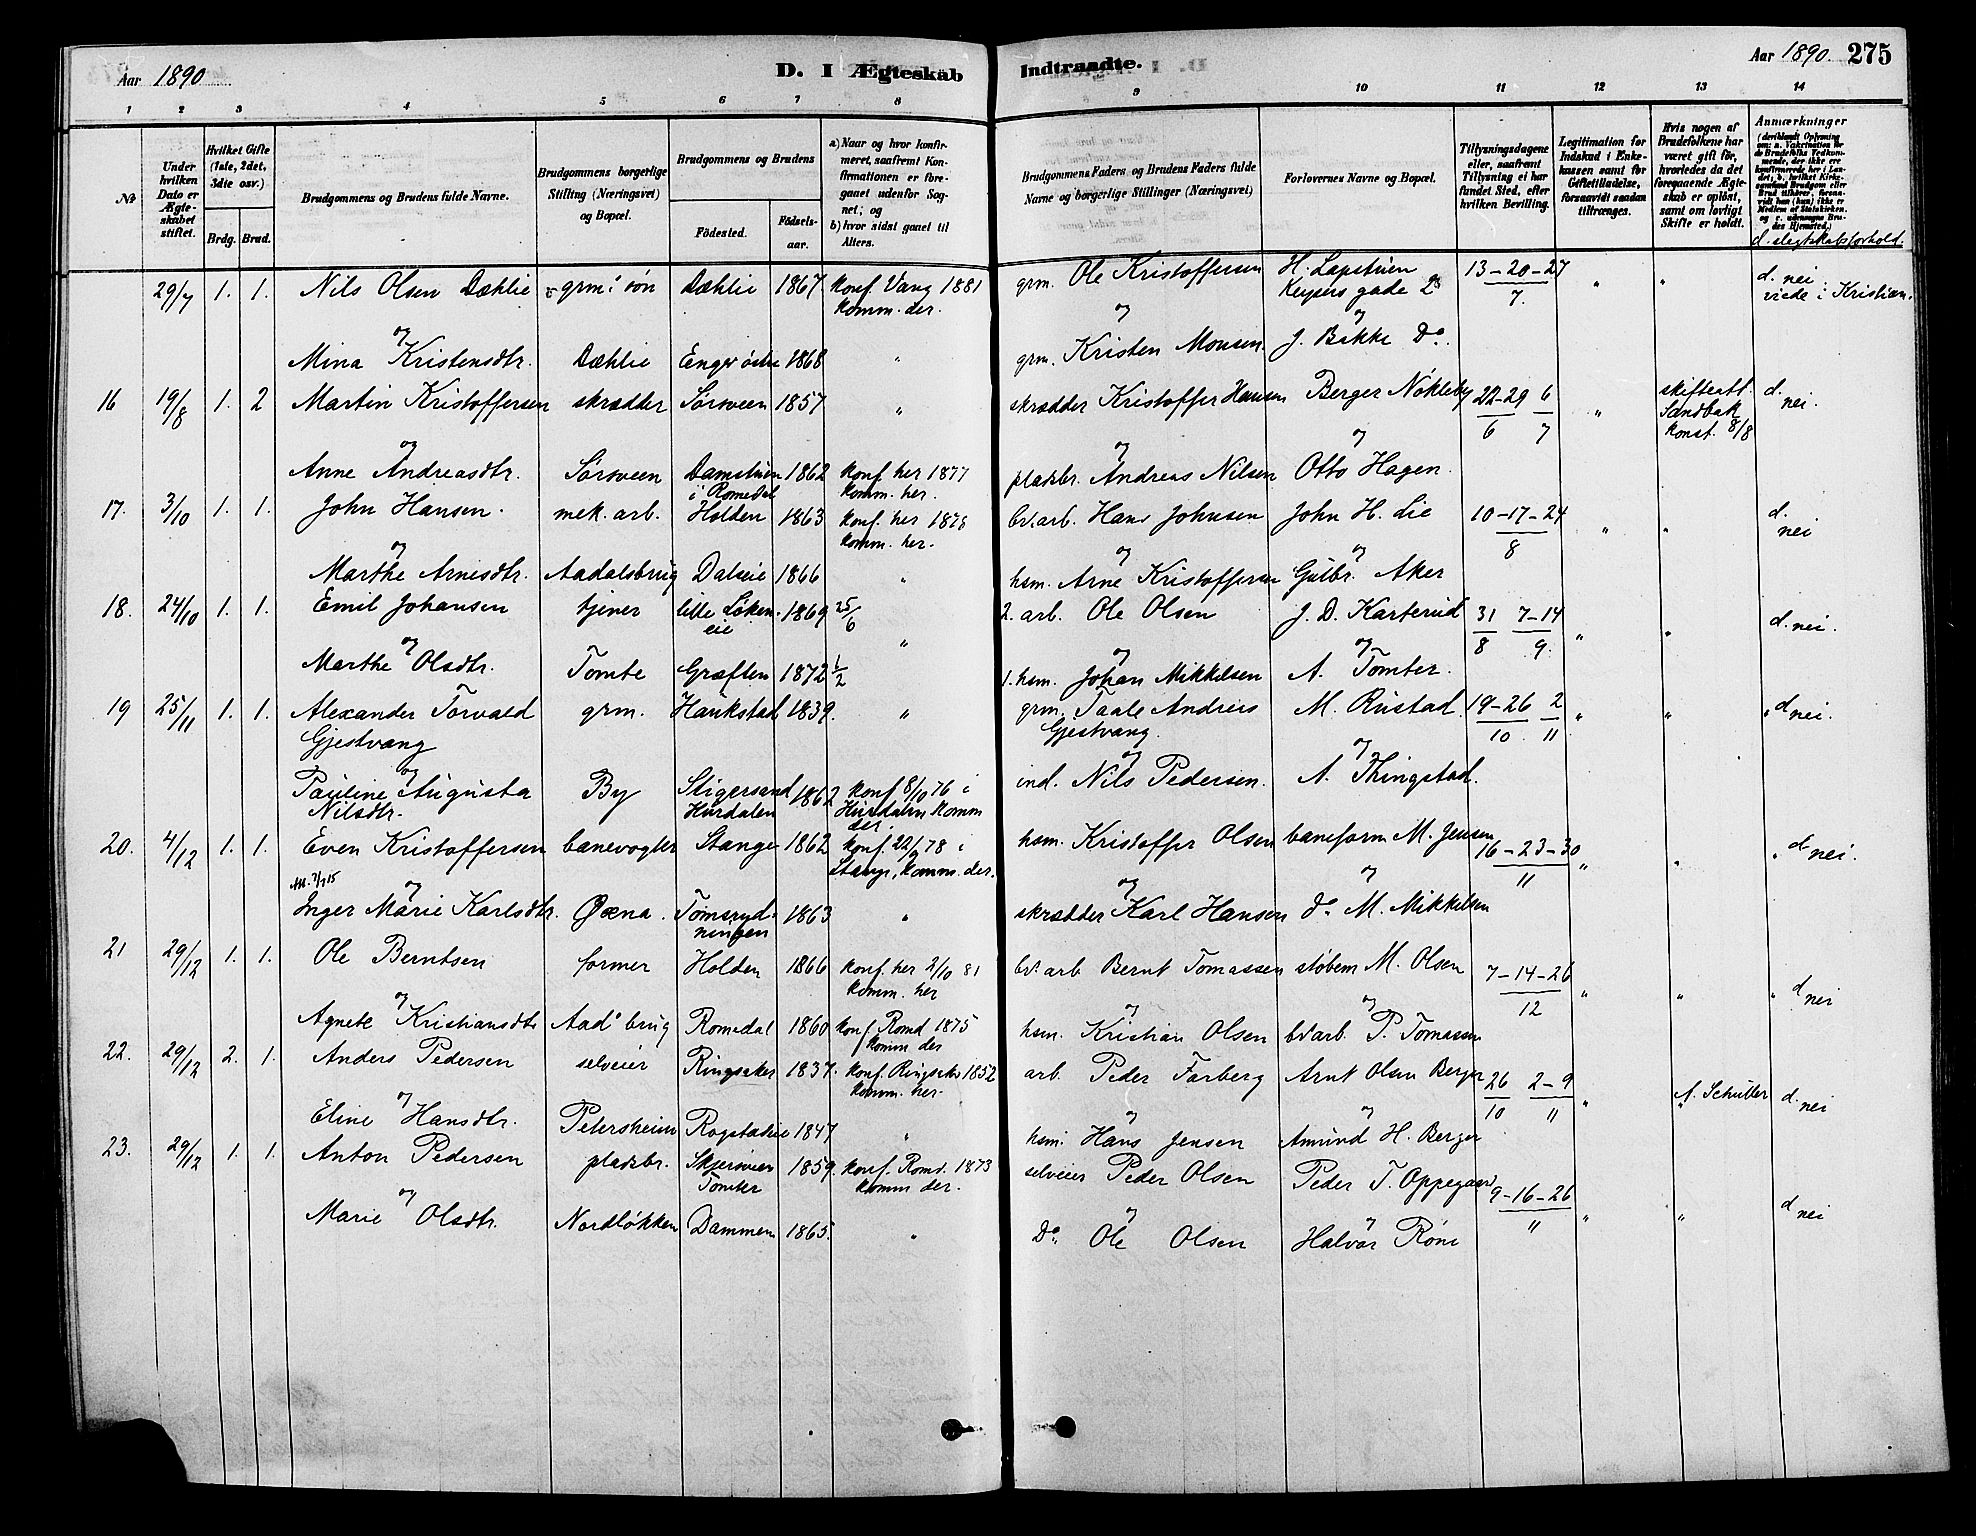 Aar 1890
D. I Ægteskab Indtraadte.
Aar 1890. 275
1 2 3 4 5 6 7 8 9 10 11 12 13 14
№
Under hvilken Dato er Ægteskabet stiftet.
Hvilket Gifte (1ste, 2det, 3die osv.)
Brdg. Brud.
Brudgommens og Brudens fulde Navne.
Brudgommens borgerlige Stilling (Næringsvei) og Bopæl.
Brudgommens og Brudens
Fødested. Fødselsaar.
a) Naar og hvor konfirmeret, saafremt Konfirmationen er foregaaet udenfor Sognet; og b) hvor sidst gaaet til Alters.
Brudgommens Faders og Brudens Faders fulde Navne og borgerlige Stillinger (Næringsvei)
Forlovernes Navne og Bopæl.
Tillysningsdagene eller, saafremt Tillysning ei har fundet Sted, efter hvilken Bevilling.
Legitimation for Indskud i Enkekassen samt for Giftetilladelse, forsaavidt saadan tiltrænges.
Hvis nogen af Brudefolkene har været gift før, hvorledes da det foregaaende Ægteskab er opløst, samt om lovligt Skifte er holdt.
Anmærkninger
d. slegtskabsforhold.
29/7 1. 1. Nils Olsen Dæhlie grm. søn Dæhlie 1867 konf. Vang 1881 komm. der. grm. Ole Kristoffersen H. Lapstuen Keysers gade 13-20-27/7. " " d. nei. viede i Kristian.
og og og
Mina Kristensdtr. Dæhlie Enger østre 1868 " grm. Kristen Monsen. J. Bakke Do.
16 19/8 1. 2 Martin Kristoffersen skrædder Sørsveen 1857 " skrædder Kristoffer Hansen Berger Nøkleby 22-29/6 6/7 " skifteatt. Sandbak konst. 8/8 d. nei.
og og og
Anne Andreasdtr. Sørsveen Damstuen i Romedal 1862 konf her 1877 komm. her. pladsbr. Andreas Nilsen Otto Hagen.
17. 3/10 1. 1. John Hansen. mek. arb. Holden 1863 konf. her 1878 komm. her. br. arb. Hans Johnsen John H. Lie 10-17-24/8 " " d. nei
og og og
Marthe Arnesdtr. Aadalsbrug Dalseie 1866 " hsm. Arne Kristoffersen Gulbr. Aker
18. 24/10 1. 1. Emil Johansen tjener lille Løkeneie 1869 25/6 " 2. arb. Ole Olsen J. D. Karterud 31/8 7-14/9. " " d. nei.
og og og
Marthe Olsdtr. Tomte Græften 1872 1/2 1. hsm. Johan Mikkelsen A. Tomter.
19 25/11 1. 1. Alexander Torvald Gjestvang grm. Haukstad 1839. " grm. Taale Andreas Gjestvang. M. Rustad. 19-26/10 2/11 " " " d nei.
og og og
Pauline Augusta Nilsdtr. By Stigersand Hurdalen 1862 konf 8/10 76 i Hurdalen komm der. ind. Nils Pedersen. A. Thingstad.
20. 4/12 1. 1. Even Kristoffersen banevogter Stange 1862 konf. 22/9 78 i Stange, komm. der. hsm. Kristoffer Olsen baneform M. Jensen 16-23-30/11 " " " d nei.
og og og
Inger Marie Karlsdtr. Øxna. Tomsrydningen 1863 " skrædder Karl Hansen do M. Mikkelsen
21 29/12 1. 1. Ole Berntsen former Holden 1866 konf. her 2/10 81 komm. her br. arb Bernt Tomassen støbem M. Olsen 7-14-26/12 " " " d nei
og og og
Agnete Kristiansdtr Aads brug Romedal 1860 konf Romd 1875 komm der hsm. Kristian Olsen br. arb. P. Tomassen
22. 29/12 2. 1. Anders Pedersen selveier Ringsaker 1837. konf. Ringsaker 1852 komm. her. arb. Peder Farberg Arnt Olsen Berger 26/10 2-9/11 " " A. Schulter d. nei
og og og
Eline Hansdtr. Petersheim 1847 " hsm. Hans Jensen Amund H. Berger
23. 29/12 1. 1. Anton Pedersen pladsbr. Tomter 1859. konf. Romd. 1873 komm der. selveier Peder Olsen Peder T. Oppegaard 9-16-26/11 " " d nei
og og og
Marie Olsdtr. Nordløkken Dammen 1865. " Do Ole Olsen Halvor Røne